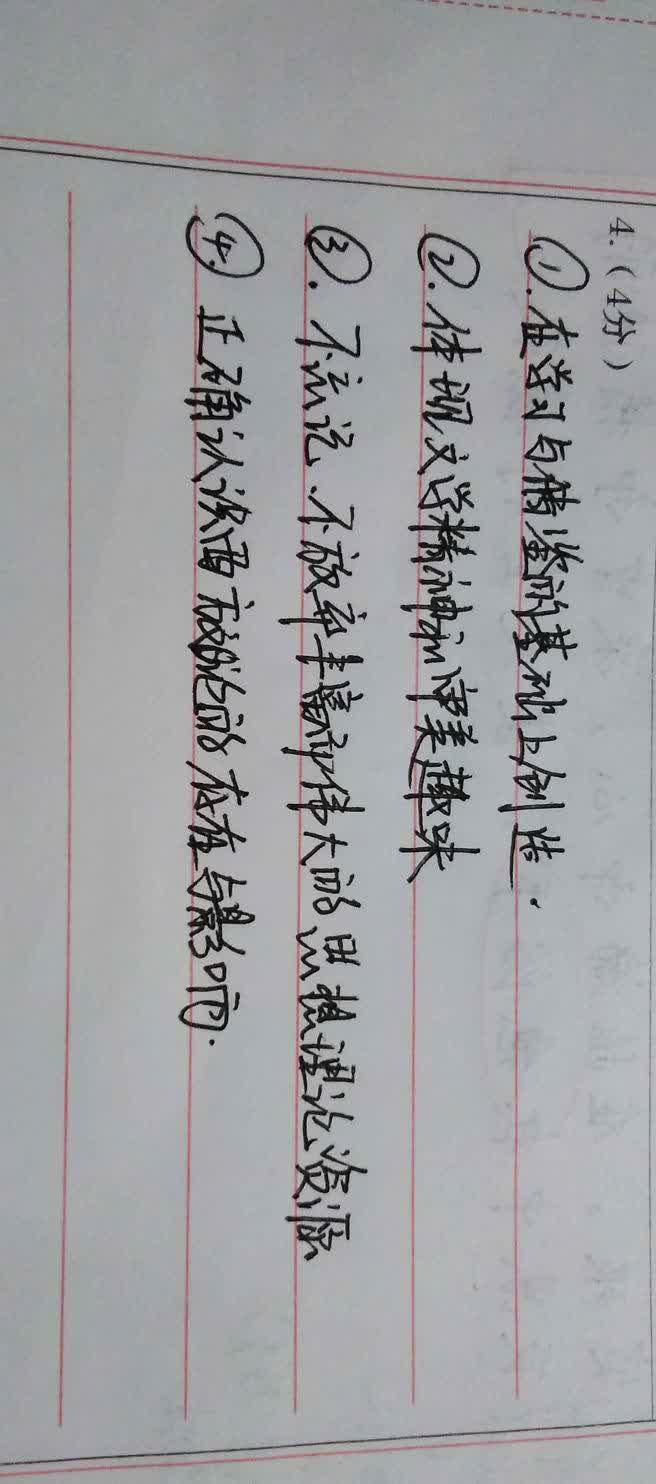 4.（4分）
①.在学习与借鉴的基础上创造.
②.体现文学精神和审美趣味
③.不应忘、不放弃丰富和伟大的思想理论资源
④.正确认识西方文论的存在与影响.